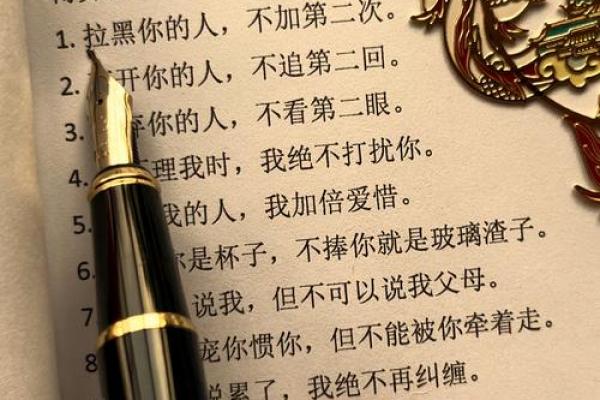 1. 拉黑你的人，不加第二次。
2. 开你的人，不追第二回。
3. 弃你的人，不看第二眼。
4. 理我时，我绝不打扰你。
5. 我的人，我加倍爱惜。
6. 你是杯子，不捧你就是玻璃渣子。
7 说我，但不可以说我父母。
8 宠你惯你，但不能被你牵着走。
说累了，我绝不再纠缠。